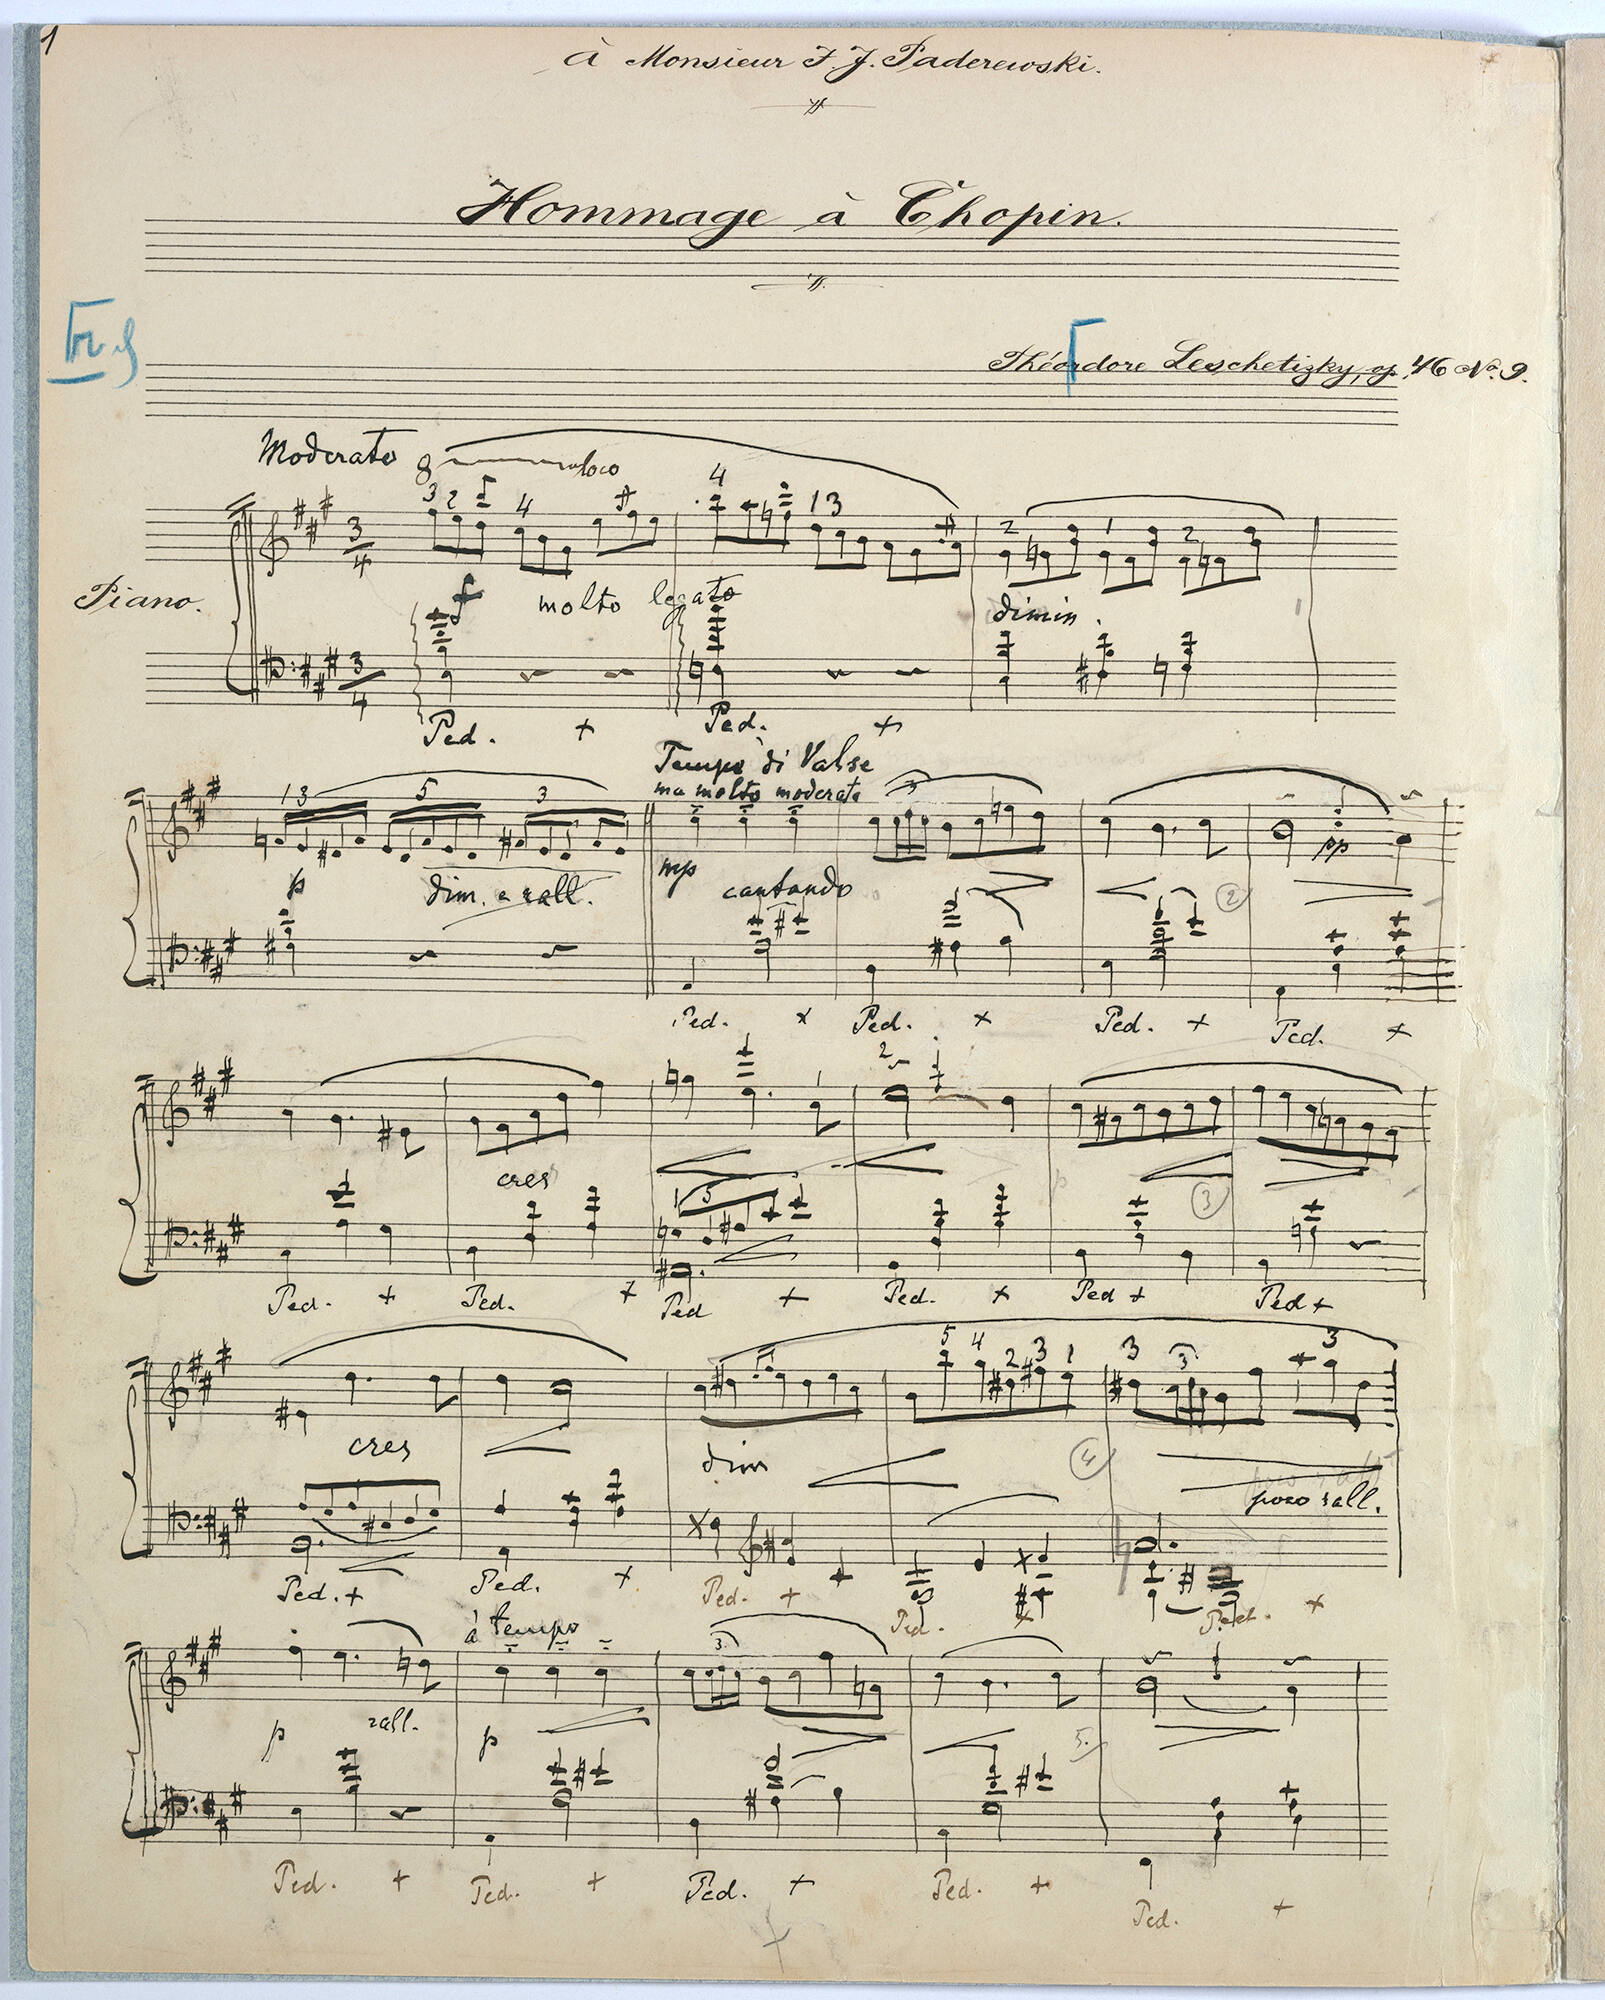 1
à Monsieur I. J. Paderewski.
Hommage à Chopin.
Théordore Leschetizky, op. 46 No. 9.
Moderato 8 loco
3 2 4 4 1 3 2 1 2
3 4
Piano.
f molto legato dimin.
3 4
Ped. + Ped. +
Tempo di Valse
1 3 5 3 ma molto moderato 3
p dim. e rall. mp cantando pp
2
Ped. + Ped. + Ped. + Ped. +
2
cres
1 5 3
Ped. + Ped. + Ped + Ped. + Ped + Ped +
5 4 2 3 1 3 3 3
cres dim
4
poco rall.
Ped. + Ped. + Ped. + Ped. + Ped. +
à tempo
3
p rall. p
5.
Ped. + Ped. + Ped. + Ped. + Ped. +